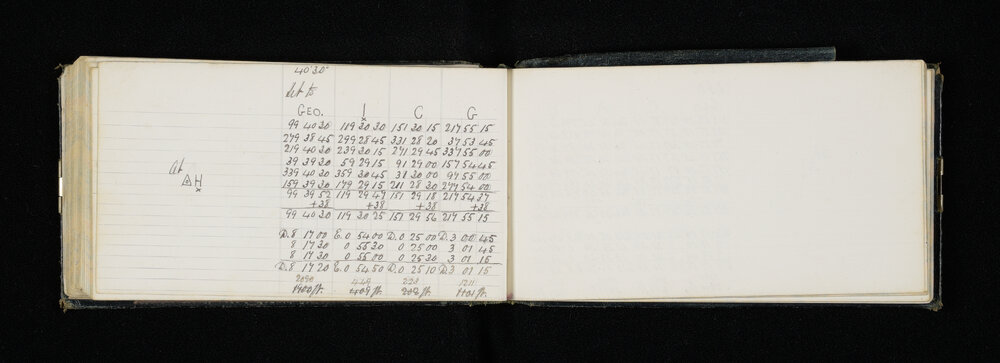 40' 30"
Set to
GEO. I C G
99 40 30 119 30 30 151 30 15 217 55 15
279 38 45 299 28 45 331 28 20 37 53 45
219 40 30 239 30 15 271 29 45 337 55 00
At
39 39 30 59 29 15 91 29 00 157 54 45
△H
339 40 30 359 30 45 31 30 00 97 55 00
159 39 30 179 29 15 211 28 30 277 54 00
99 39 52 119 29 47 151 29 18 217 54 37
+38 +38 +38 +38
99 40 30 119 30 25 151 29 56 217 55 15
D. 8 17 00 E. 0 54 00 D. 0 25 00 D. 3 00 45
8 17 30 0 55 30 0 25 00 3 01 45
8 17 30 0 55 00 0 25 30 3 01 15
D. 8 17 20 E. 0 54 50 D. 0 25 10 D. 3 01 15
2090 449 223 1211
ft. ft. ft. ft.